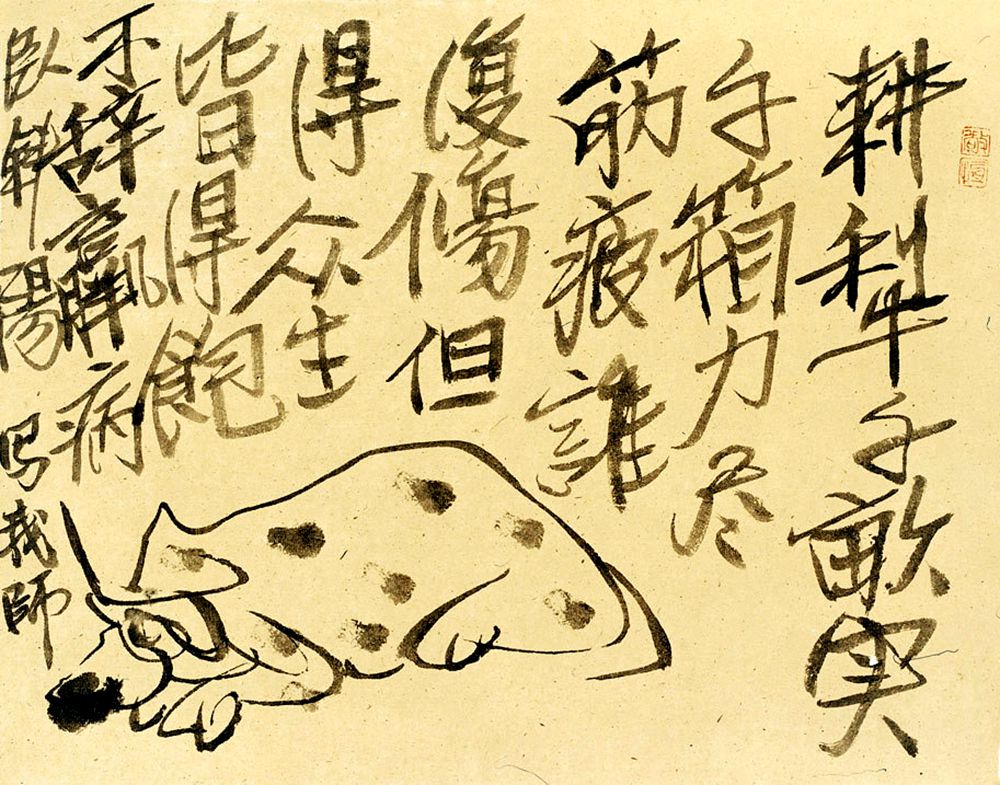 耕犁千畝实
千箱力尽
筋疲誰
復傷但
得众生
皆得飽
不辞羸病
臥陽 写我師